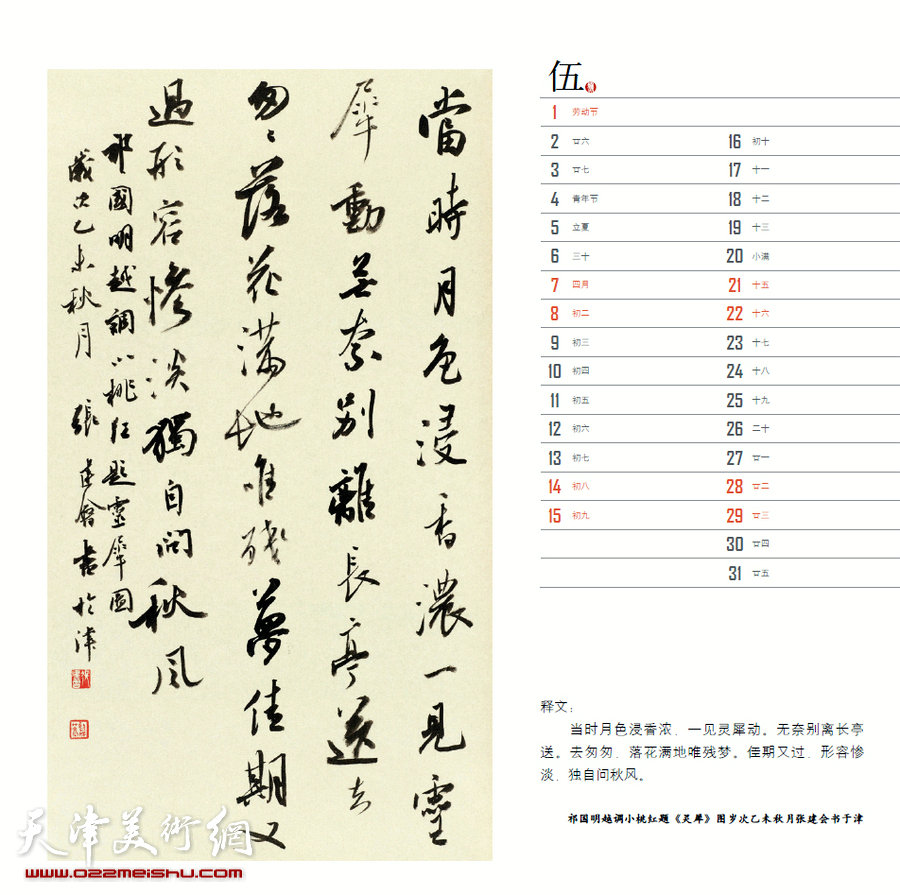 當時月色浸香濃一見靈
犀動無奈別離長亭送去
匆匆落花满地唯残夢佳期又
過形容惨淡獨自問秋風
祁國明越調小桃红題靈犀圖
歲次乙未秋月 張建會書於津
天津美術網
www.022meishu.com
伍
1 劳动节
2 廿六
3 廿七
4 青年节
5 立夏
6 三十
7 四月
8 初二
9 初三
10 初四
11 初五
12 初六
13 初七
14 初八
15 初九
16 初十
17 十一
18 十二
19 十三
20 小满
21 十五
22 十六
23 十七
24 十八
25 十九
26 二十
27 廿一
28 廿二
29 廿三
30 廿四
31 廿五
释文：
当时月色浸香浓，一见灵犀动。无奈别离长亭
送。去匆匆，落花满地唯残梦。佳期又过，形容惨
淡，独自问秋风。
祁国明越调小桃红题《灵犀》图岁次乙未秋月张建会书于津